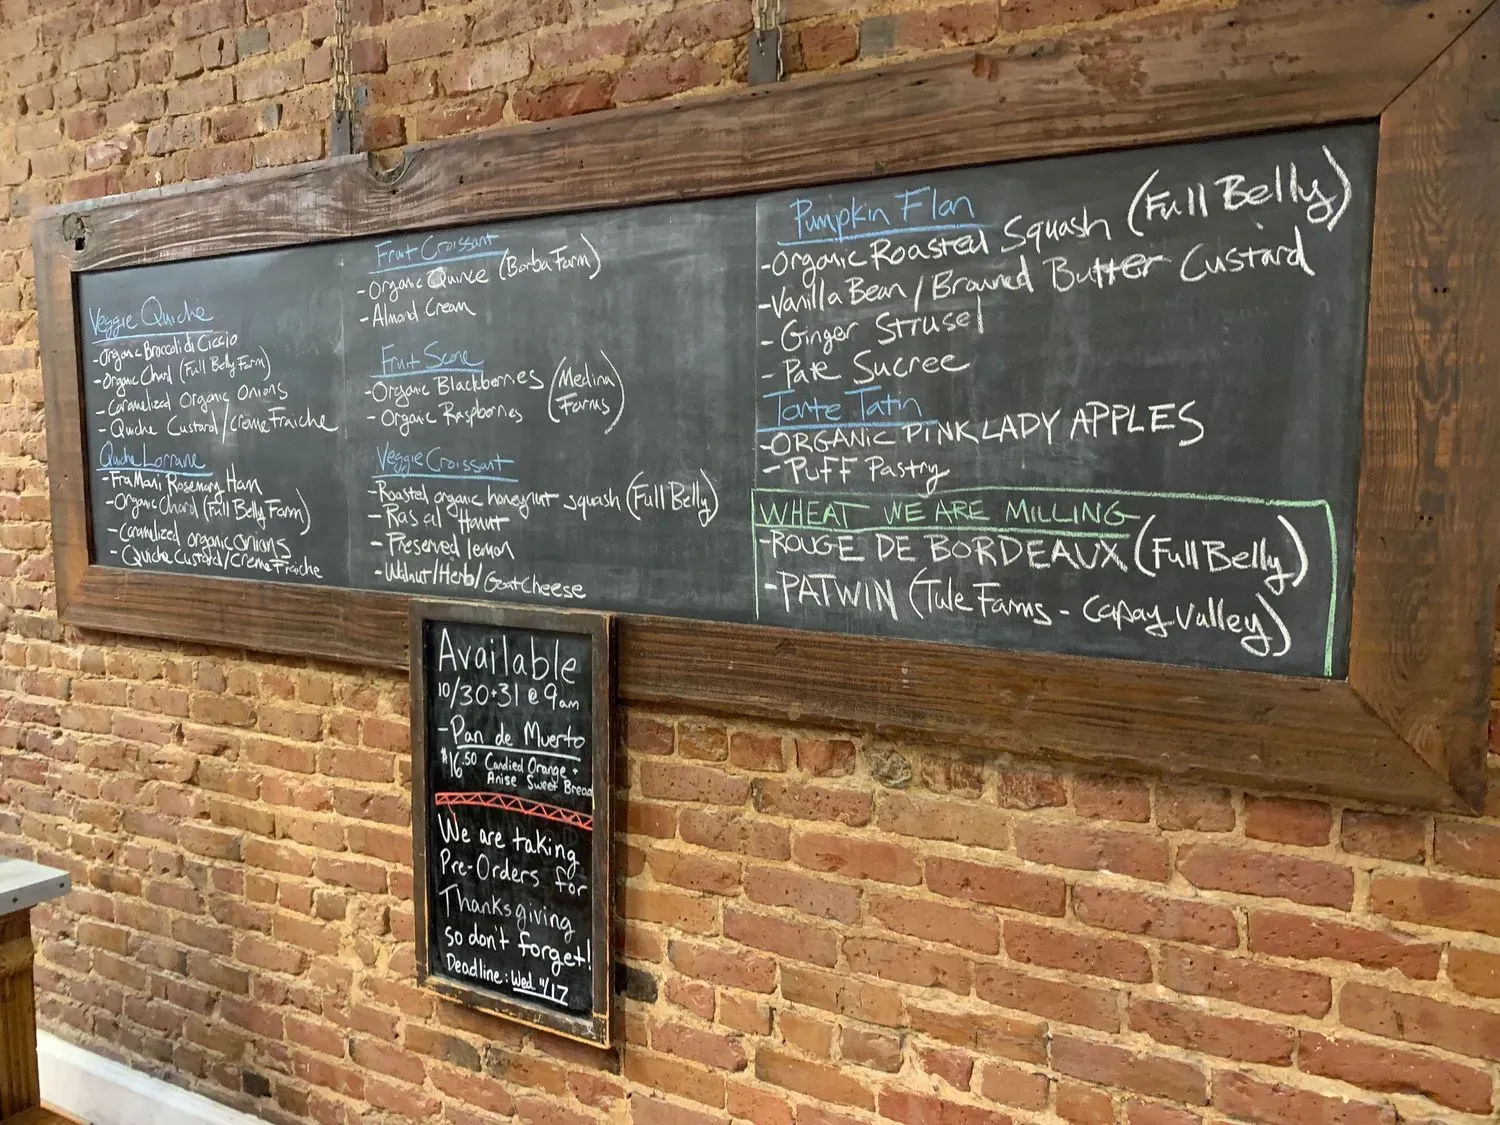 Veggie Quiche
-Organic Broccoli di Ciccio
-Organic Chard (Full Belly Farm)
-Caramelized Organic Onions
-Quiche Custard/Creme Fraiche
Quiche Lorraine
-FraMani Rosemary Ham
-Organic Chard (Full Belly Farm)
-Caramelized organic onions
-Quiche Custard/Creme Fraiche
Fruit Croissant
-Organic Quince (Barba Farm)
-Almond Cream
Fruit Scone
-Organic Blackberries (Medina
-Organic Raspberries Farms)
Veggie Croissant
-Roasted organic honeynut squash (Full Belly)
-Ras al Hanut
-Preserved lemon
-Walnut/Herb/Goat Cheese
Pumpkin Flan
-Organic Roasted Squash (Full Belly)
-Vanilla Bean/Browned Butter Custard
-Ginger Strusel
-Pate Sucree
Tarte Tatin
-ORGANIC PINK LADY APPLES
-PUFF Pastry
WHEAT WE ARE MILLING
-ROUGE DE BORDEAUX (Full Belly)
-PATWIN (Tule Farms - Capay Valley)
Available
10/30+31 @ 9am
-Pan de Muerto
$16.50 Candied Orange +
Anise Sweet Bread
We are taking
Pre-Orders for
Thanksgiving
so don't forget!
Deadline: Wed 11/17